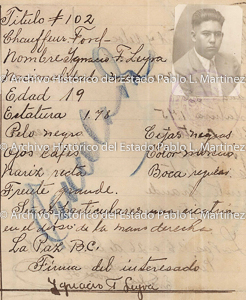 Titulo # 102
Chauffeur Ford
Nombre Ignacio F. Leyva
Archivo Histórico del Estado Pablo L. Martínez
Edad 19
Estatura 1.76
Pelo negro Cejas negras
Archivo Histórico del Estado Pablo L. Martínez
Ojos cafés Color moreno
Nariz recta Boca regular
Frente grande.
Señales particulares una cicatriz
en el dorso de la mano derecha
Archivo Histórico del Estado Pablo L. Martínez
La Paz B.C.
Firma del interesado
Ignacio F Leyva